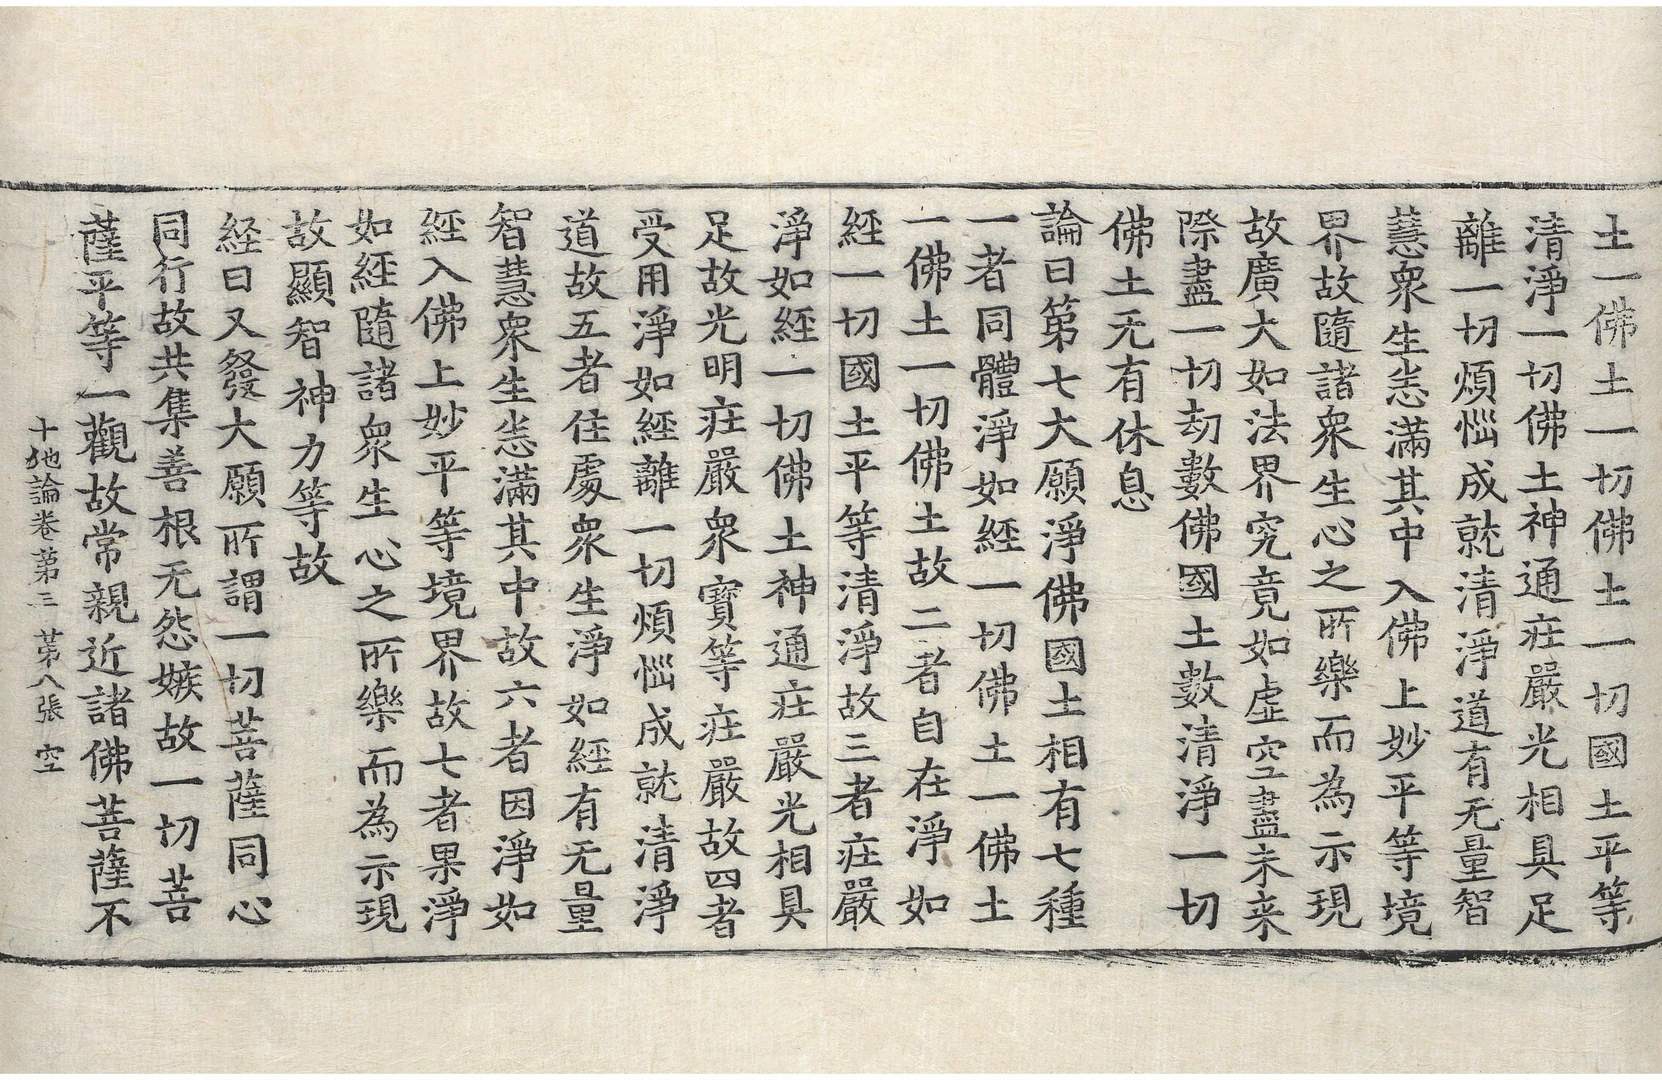 土一佛土一切佛土一切國土平等
清淨一切佛土神通庄嚴光相具足
離一切煩惱成就清淨道有无量智
慧衆生悉滿其中入佛上妙平等境
界故隨諸衆生心之所樂而為示現
故廣大如法界究竟如虛空盡未来
際盡一切劫數佛國土數清淨一切
佛土无有休息
論曰第七大願淨佛國土相有七種
一者同體淨如經一切佛土一佛土
一佛土一切佛土故二者自在淨如
經一切國土平等清淨故三者庄嚴
淨如經一切佛土神通庄嚴光相具
足故光明庄嚴衆寶等庄嚴故四者
受用淨如經離一切煩惱成就清淨
道故五者住處衆生淨如經有无量
智慧衆生悉滿其中故六者因淨如
經入佛上妙平等境界故七者果淨
如經隨諸衆生心之所樂而為示現
故顯智神力等故
経曰又發大願所謂一切菩薩同心
同行故共集善根无怨嫉故一切菩
薩平等一觀故常親近諸佛菩薩不
十地論卷第三 第八張 空